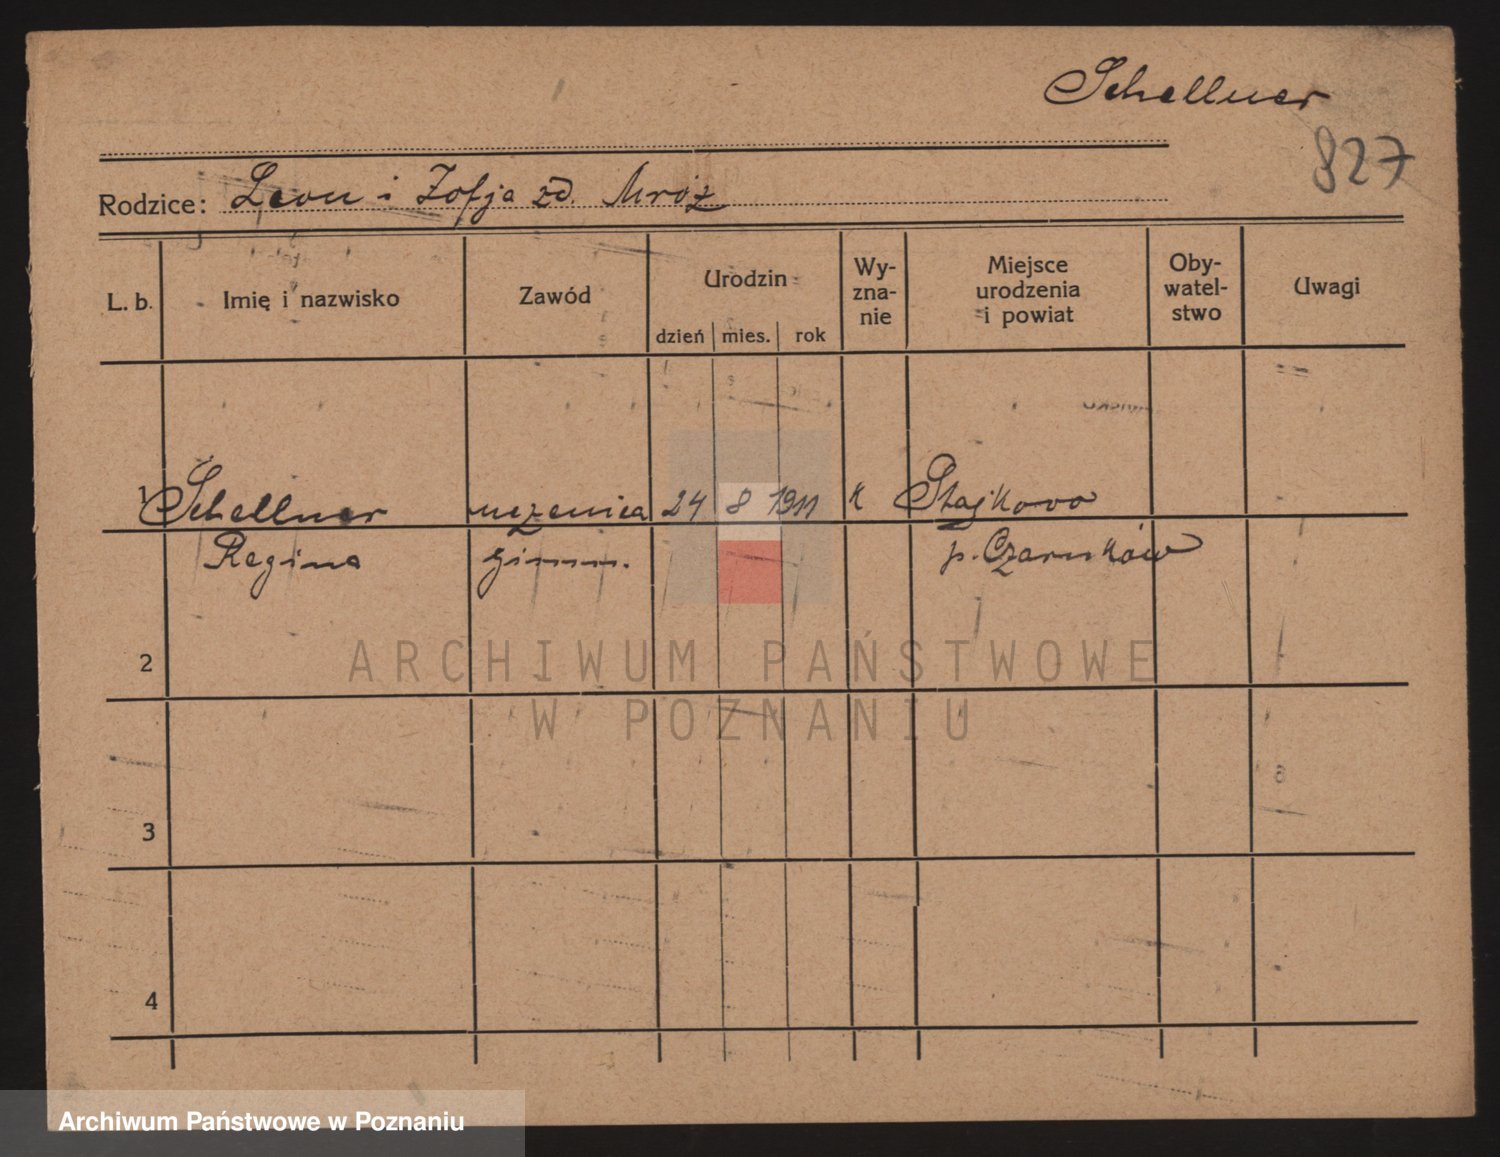 Schellner
827
Rodzice: Leon i Zofja zd. Mróz
L. b.
Imię i nazwisko
Zawód
Urodzin
dzień mies. rok
Wy-
zna-
nie
Miejsce
urodzenia
i powiat
Oby-
watel-
stwo
Uwagi
1 Schellner uczenica 24 8 1911 k Stajkowo
Regina gimn. p. Czarnków
2
ARCHIWUM PAŃSTWOWE
W POZNANIU
3
4
Archiwum Państwowe w Poznaniu